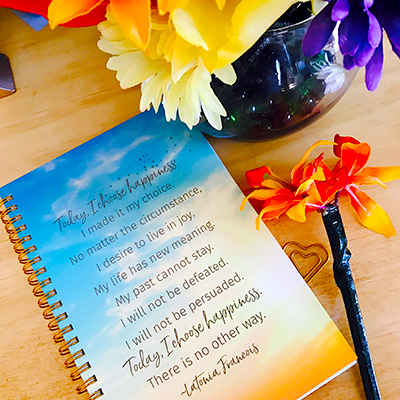 Today, I choose happiness.
I made it my choice.
No matter the circumstance,
I desire to live in joy.
My life has new meaning.
My past cannot stay.
I will not be defeated.
I will not be persuaded.
Today, I choose happiness.
There is no other way.
~Latonia Francois